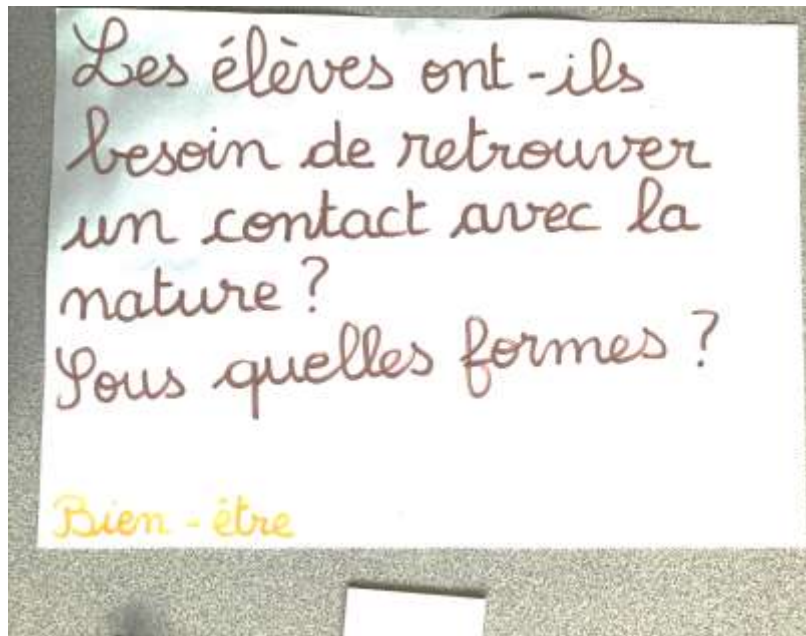 Les élèves ont-ils
besoin de retrouver
un contact avec la
nature ?
Sous quelles formes ?
Bien-être